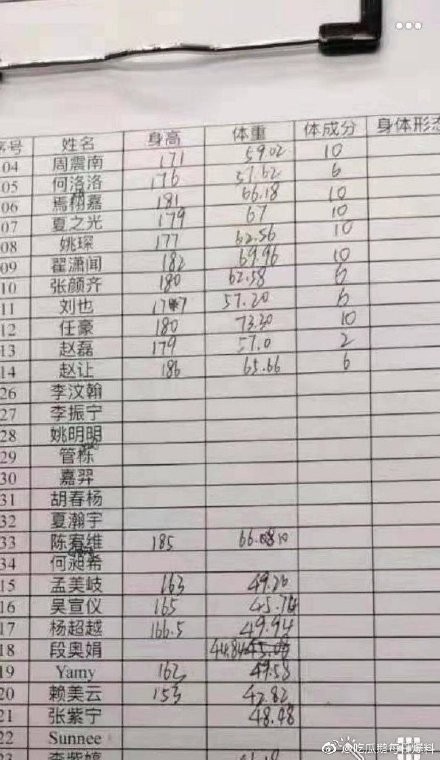 序号 姓名 身高 体重 体成分 身体形态
04 周震南 171 59.02 10
05 何洛洛 176 57.62 6
06 焉栩嘉 181 66.18 10
07 夏之光 179 67 10
08 姚琛 177 62.56 10
09 翟潇闻 182 69.96 10
10 张颜齐 180 62.58 6
11 刘也 177 57.20 6
12 任豪 180 73.30 10
13 赵磊 179 57.0 2
14 赵让 186 65.66 6
26 李汶翰
27 李振宁
28 姚明明
29 管栎
30 嘉羿
31 胡春杨
32 夏瀚宇
33 陈宥维 185 66.08 10
34 何昶希
15 孟美岐 163 49.20
16 吴宣仪 165 45.74
17 杨超越 166.5 49.94
18 段奥娟 44.84
19 Yamy 162 49.58
20 赖美云 153 42.82
21 张紫宁 48.48
22 Sunnee
23 李紫婷
@吃瓜麺每日爆料